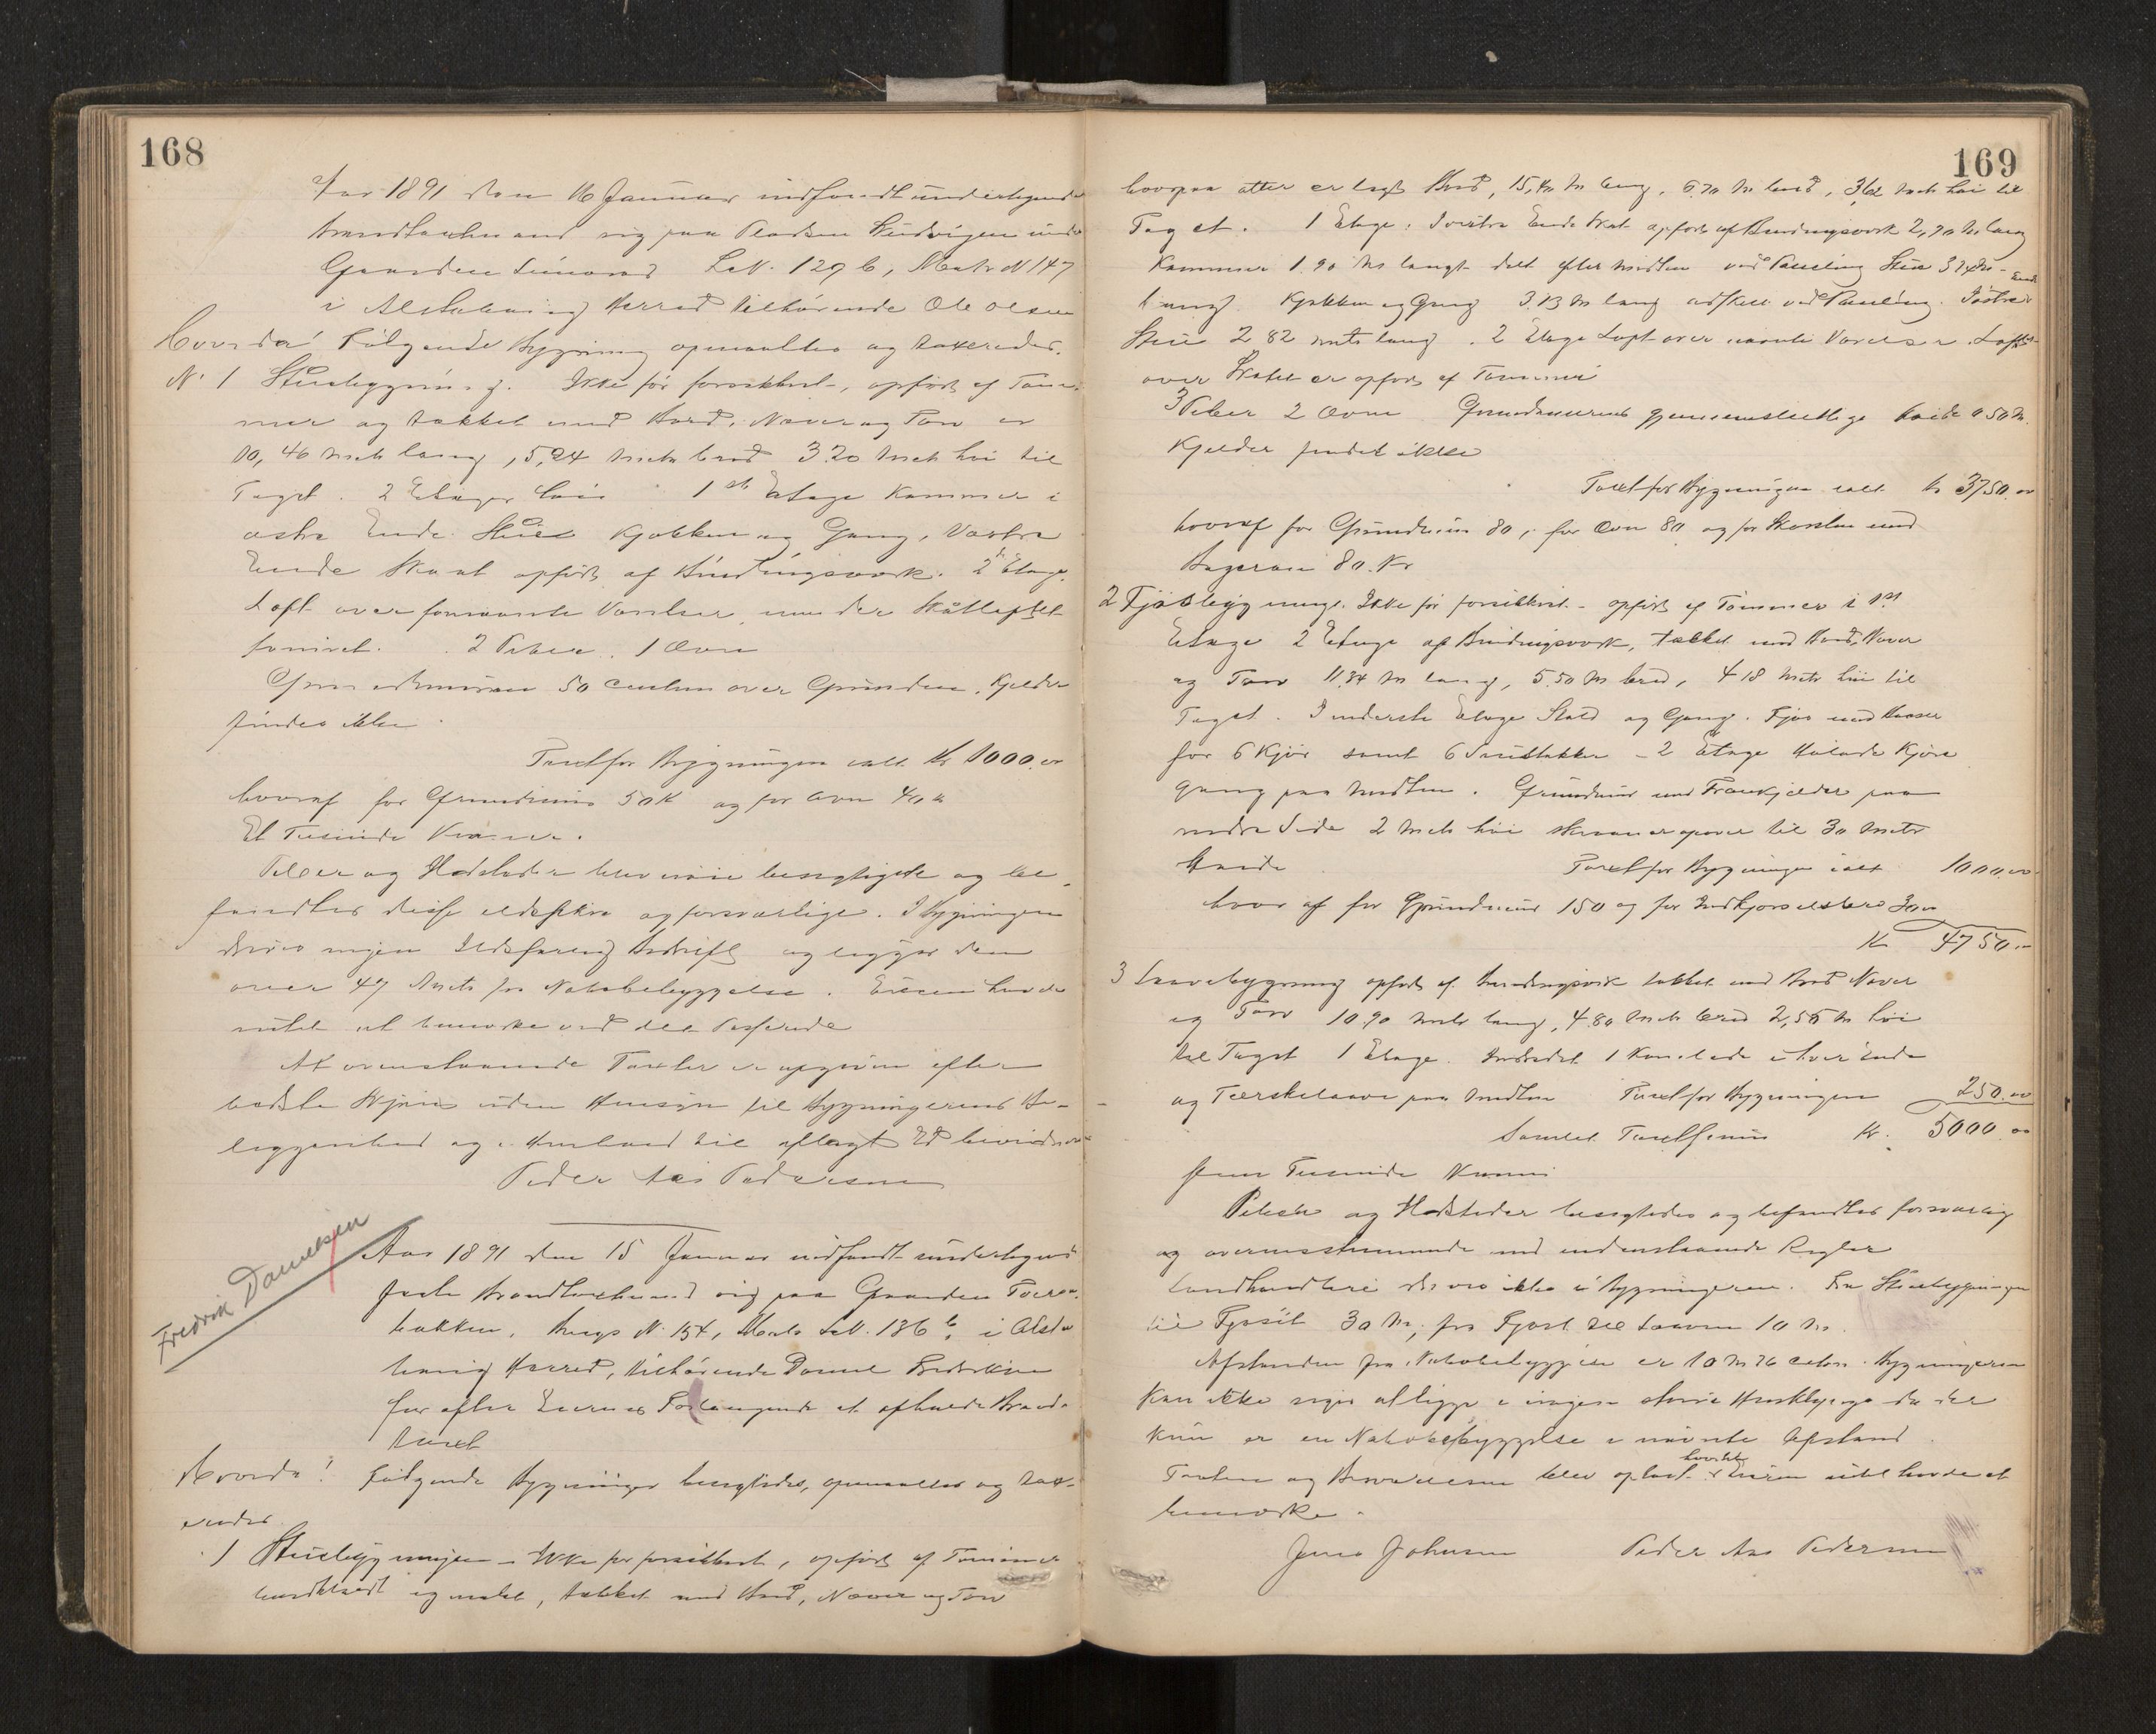 168
Aar 1891 den 16 Januar indfandt undertegnede
Brandtaxtmand sig paa Pladsen under
Gaarden LNo. 129 b, Matr N 147
i Alstahaug Herred tilhørende Ole Olsen
Hvorda! Følgende Bygning opmaaltes og taxeredes.
N. 1 Stuebygning. Ikke før forsikkret, opført af Tøm-
mer og tækket med Bord, Næver og Torv er
10,40 Metr lang, 5,24 Metr bred 3.20 Metr høi til
Taget. 2 Etager høi 1ste Etage Kammer i
østre Ende Stue Kjøkken og Gang, Vestre
Ende Skaat opført af Bindingsverk. 2 Etage
Loft over fornævnte Værelser
2 Piber. 1 Ovn
Grundmuren 50 Centm over Grunden. Kjelder
findes ikke.
Taxt for Bygningen ialt Kr 1000.00
hvoraf for Grundmur 50 K og for Ovn 40 K
Et Tusinde Kroner.
Piber og Ildsteder blev nøie besigtigede og be-
fandtes disse ildsfikre og forsvarlige. I Bygningen
drives ingen Ildsfarlig Bedrift og ligger den
over 47 Metr fra Nabobebyggelse. Eieren havde
intet at bemerke ved det Passerede
At ovenstaaende Taxter er afgivne efter
bedste Skjøn uden Hensyn til Bygningernes Be-
liggenhed og i Henhold til aflagt Ed bevidnes
Peder Aas Pedersen
Fredrik Danielsen
Aar 1891 den 15 Januar indfandt undertegnede
faste Brandtaxtmænd sig paa Gaarden
bakken, Brugs N. 154, Matr LNo. 136 b, i Alsta
haug Herred, tilhørende Daniel Fredriksen
for efter Eierens Forlangende at afholde Brand-
taxt
Hvorda! Følgende Bygninger besigtedes, opmaaltes og tax-
eredes
1 Stuebygningen - Ikke før forsikkret, opført af Tømmer
bordklædt og malet, tækket med Bord, Næver og Torv
169
hvorpaa atter er lagt Bord, 15,40 M lang, 6.70 M bred, 3,62 Metr høi til
Taget. 1 Etage. I vestre Ende Skaat opført af Bindingsverk 2,90 M lang
Kammer 1.90 M langt delt efter Midten ved Paneling Stue
lang Kjøkken og Gang 3.13 M lang adskilt ved Paneling. I østre Ende
Stue 2 82 metr lang. 2 Etage Loft over nævnte Værelser. Loftet
over Skaatet er opført af Tømmer
3 Piber 2 Ovne Grundmurens gjennemsnitlige høide 0 50 M.
Kjelder findes ikke
Taxt for Bygningen ialt Kr 3750.00
hvoraf for Grundmur 80, for Ovn 80 og for Skorsten med
Bagerovn 80. Kr
2 Fjøsbygning. Ikke før forsikkret - opført af Tømmer i 1ste
Etage 2 Etage af Bindingsverk, tækket med Bord, Næver
og Torv 11.34 M lang, 5.50 M bred, 4 18 Metr høi til
Taget. I underste Etage Stald og Gang. Fjøs med Baaser
for 6 Kjør samt 6 - 2 Etage Kjøre
gang paa Midten. Grundmur med paa
nedre Side 2 Metr høi til 30 Metr
Høide Taxt for Bygningen ialt 1000.00
hvor af for Grundmur 150 og for Indkjørselsbro 30.00
Kr 4750.-
3 Laavebygning opført af Bindingsverk tækket med Bord Næver
og Torv 10.90 Metr lang, 4.80 Metr bred 2,55 M høi
til Taget 1 Etage. Indredet 1 Kornlade i hver Ende
og Tærskelaave paa Midten Taxt for Bygningen 250.00
Samlet Taxtsum Kr. 5000.00
fem Tusinde Kroner
Piber og Ildsteder besigtedes og befandtes forsvarlig
og overensstemmende med Regler
Landhandleri drives ikke i Bygningerne. Fra Stuebygningen
til Fjøset 30 M, fra Fjøset til Laaven 10 M.
Afstanden fra Nabobebyggelse er 10 M 76 Centm. Bygningerne
kan ikke siges at ligge i nogen større Husklynge da der
kun er en Nabobebyggelse i nævnte Afstand.
Taxten og Beskrivelsen blev oplæst hvortil Eieren intet havde at
bemerke.
Jens Johnsen Peder Aas Pedersen